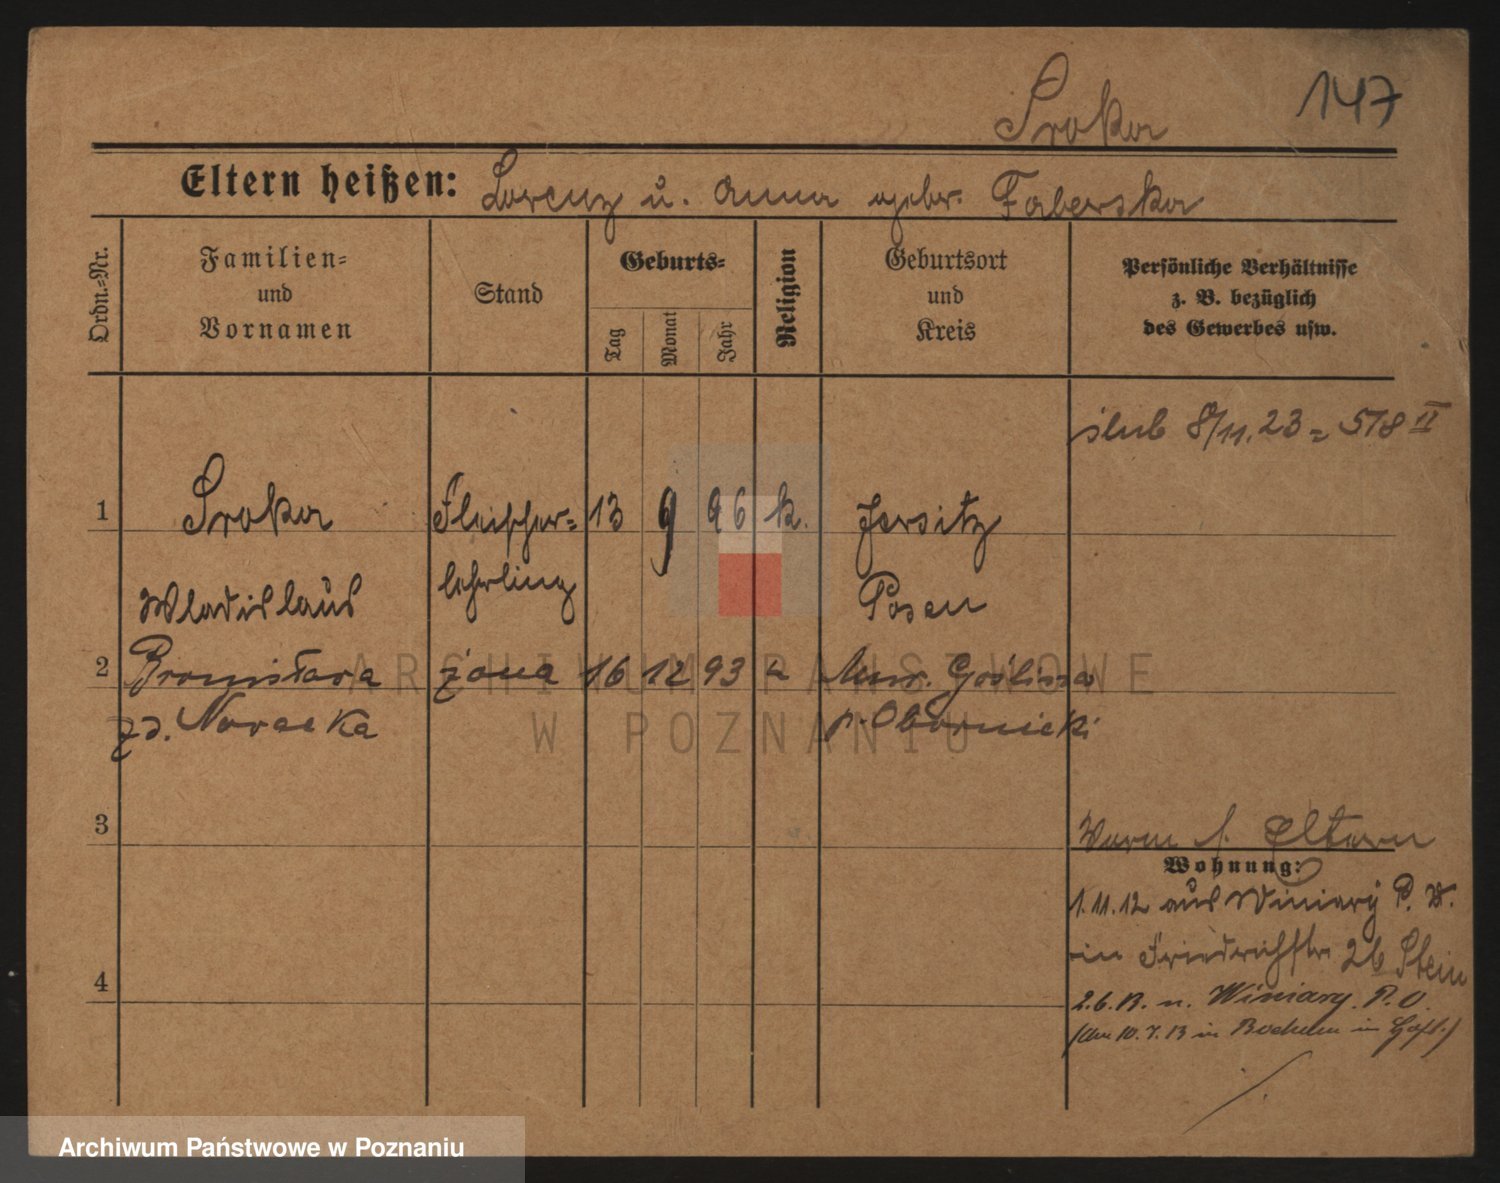 147
Sroka
Eltern heißen: Lorenz u. Anna gebr. Faberska
Ordn.=Nr.
Familien= und Vornamen
Stand
Geburts=
Tag
Monat
Jahr
Religion
Geburtsort und Kreis
Persönliche Verhältnisse
z. B. bezüglich
des Gewerbes usw.
ślub 8/11.23 = 578 II
1 Sroka Fleischer= 13 9 96 k. Jersitz
Wladislaus lehrling Posen
2 Bronisława żona 16 12 93 k Mur. Goślina
zd. Noracka p. Obornicki
3
Eltern
Wohnung:
1.11.12 aus Winiary P. W.
in Friedrichstr 26 Stein
2.6.13. n. Winiary. P. O.
(Am 10.7.13 in Bochum in Haft.)
4
ARCHIWUM PAŃSTWOWE
W POZNANIU
Archiwum Państwowe w Poznaniu